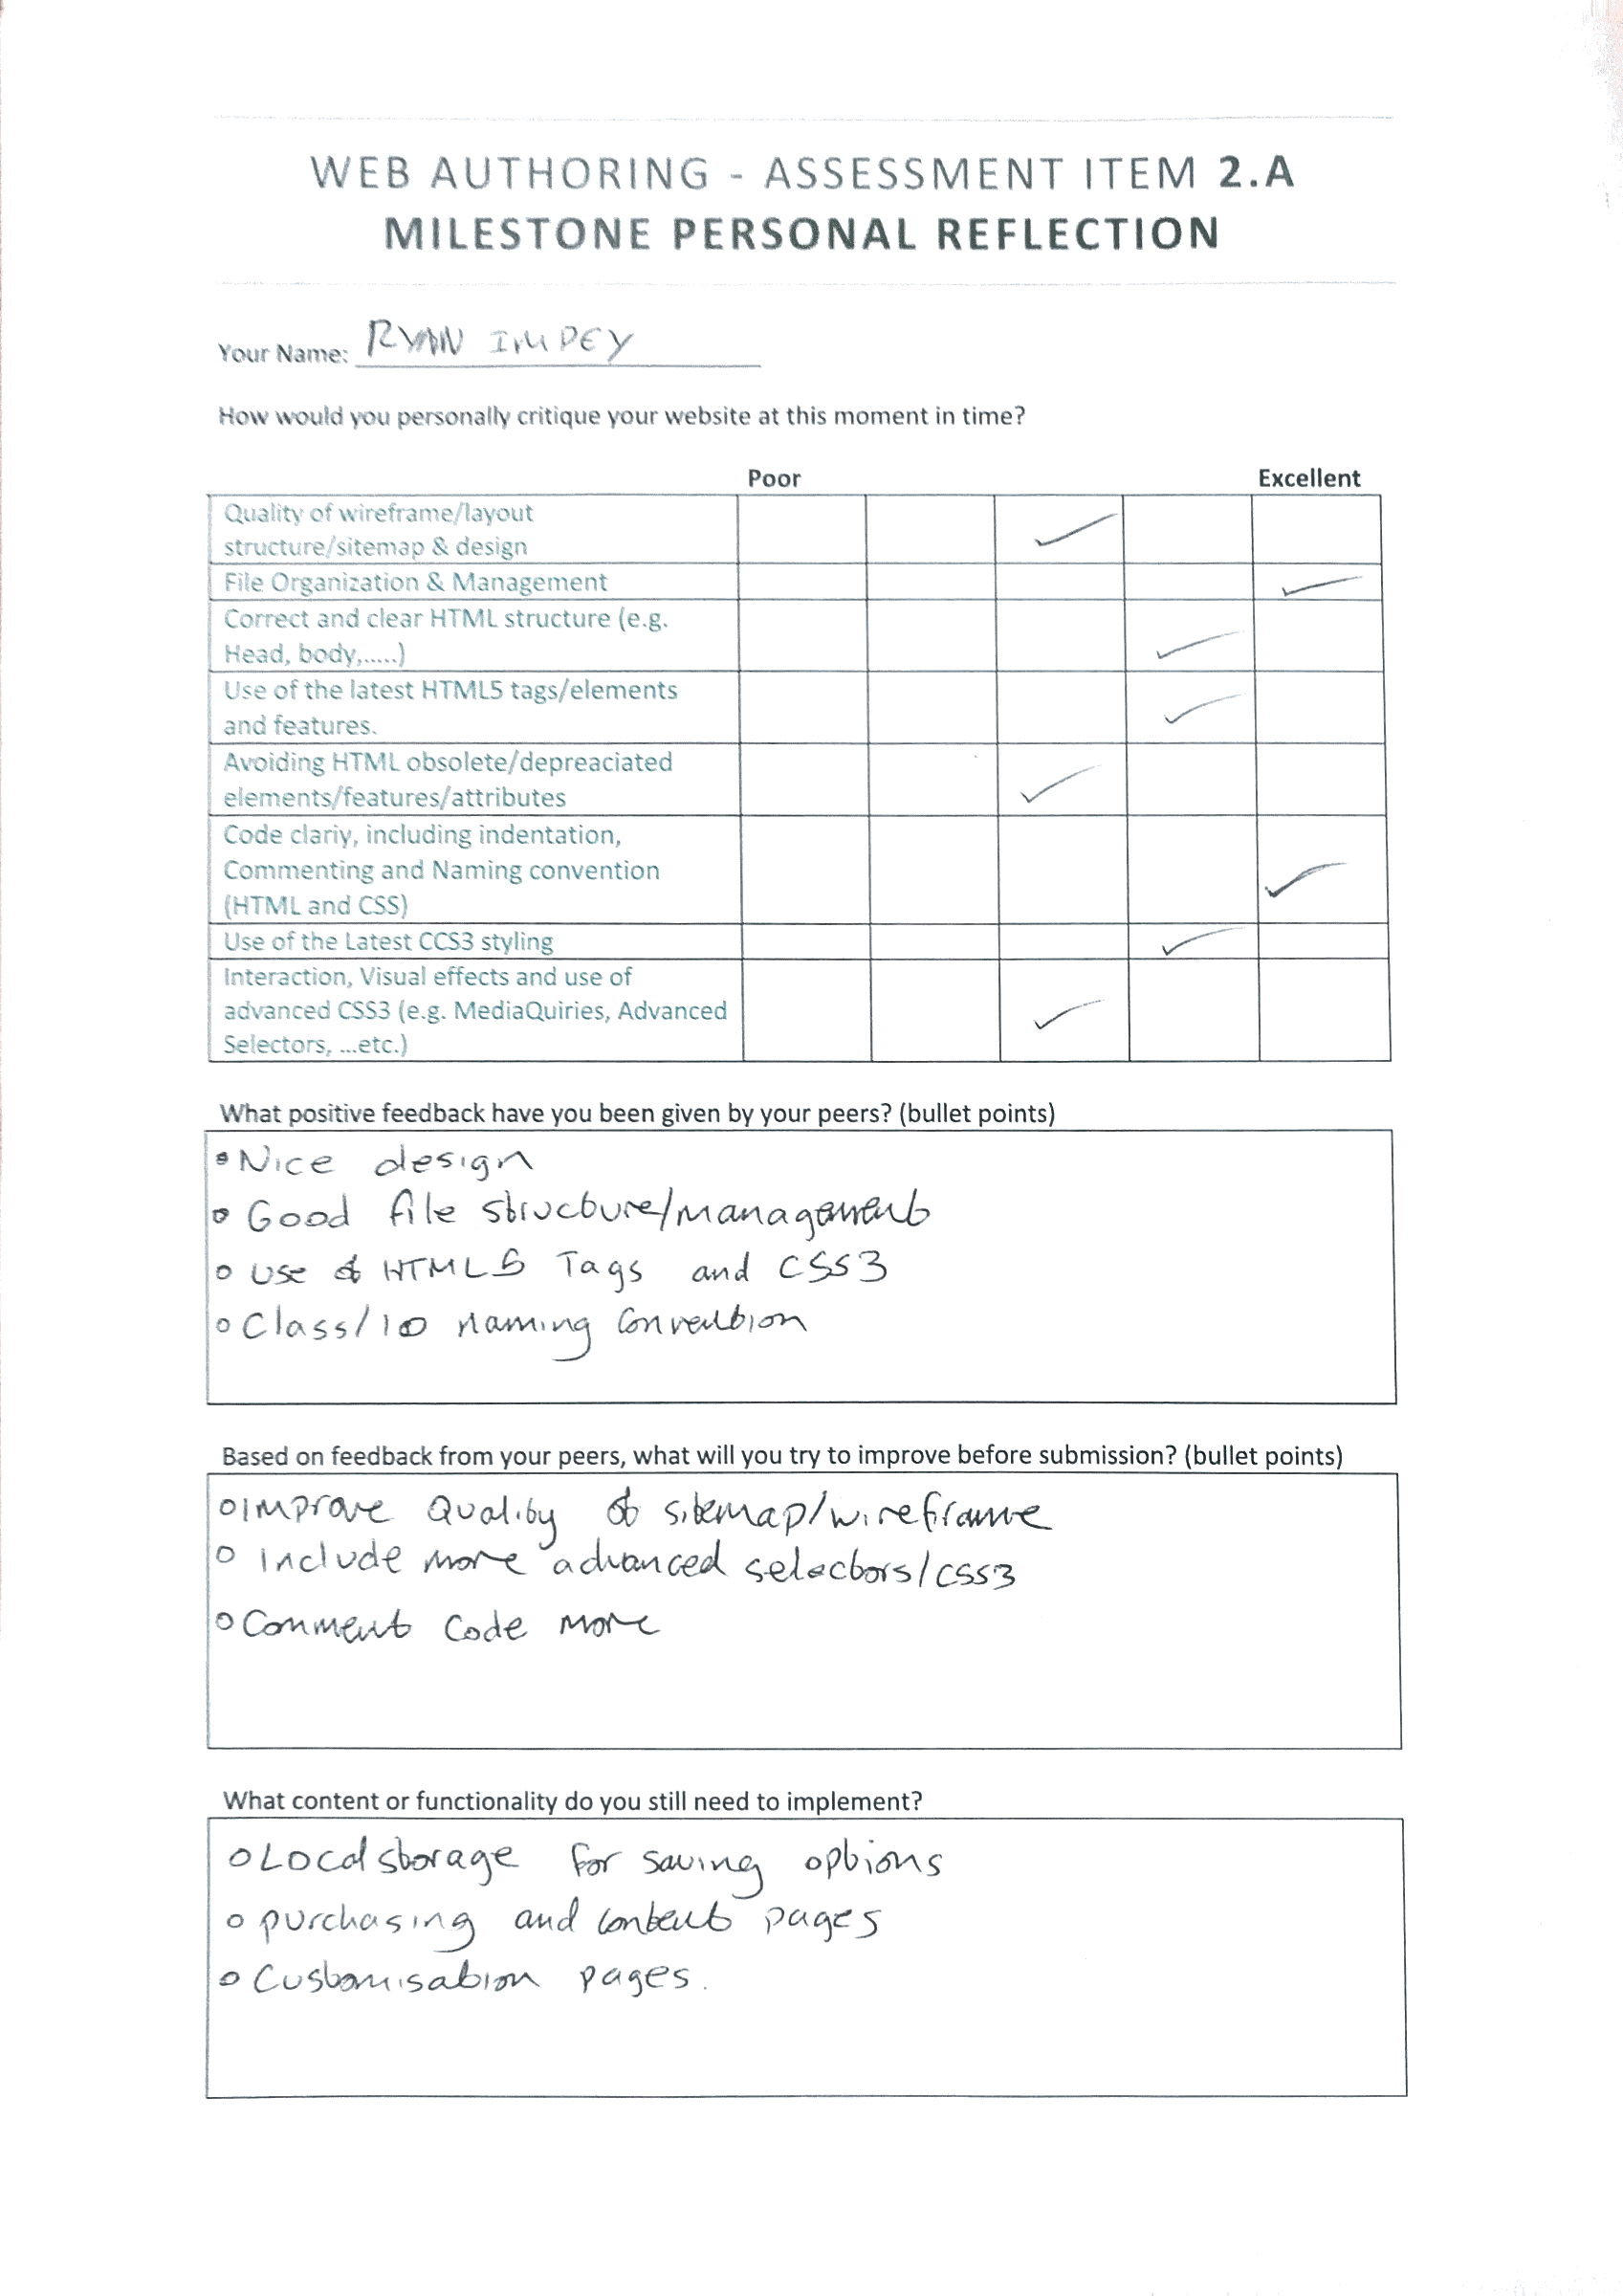 WEB AUTHORING - ASSESSMENT ITEM 2.A
MILESTONE PERSONAL REFLECTION
Your Name: RYAN IMPEY
How would you personally critique your website at this moment in time?
Poor Excellent
Quality of wireframe/layout
structure/sitemap & design
File Organization & Management
Correct and clear HTML structure (e.g.
Head, body,.....)
Use of the latest HTML5 tags/elements
and features.
Avoiding HTML obsolete/depreaciated
elements/features/attributes
Code clariy, including indentation,
Commenting and Naming convention
(HTML and CSS)
Use of the Latest CCS3 styling
Interaction, Visual effects and use of
advanced CSS3 (e.g. MediaQuiries, Advanced
Selectors, ...etc.)
What positive feedback have you been given by your peers? (bullet points)
• Nice design
• Good file structure/management
• Use of HTML5 Tags and CSS3
• Class/ID naming convention
Based on feedback from your peers, what will you try to improve before submission? (bullet points)
• Improve Quality of sitemap/wireframe
• include more advanced selectors/CSS3
• Comment Code more
What content or functionality do you still need to implement?
• Local storage for saving options
• purchasing and content pages
• Customisation pages.